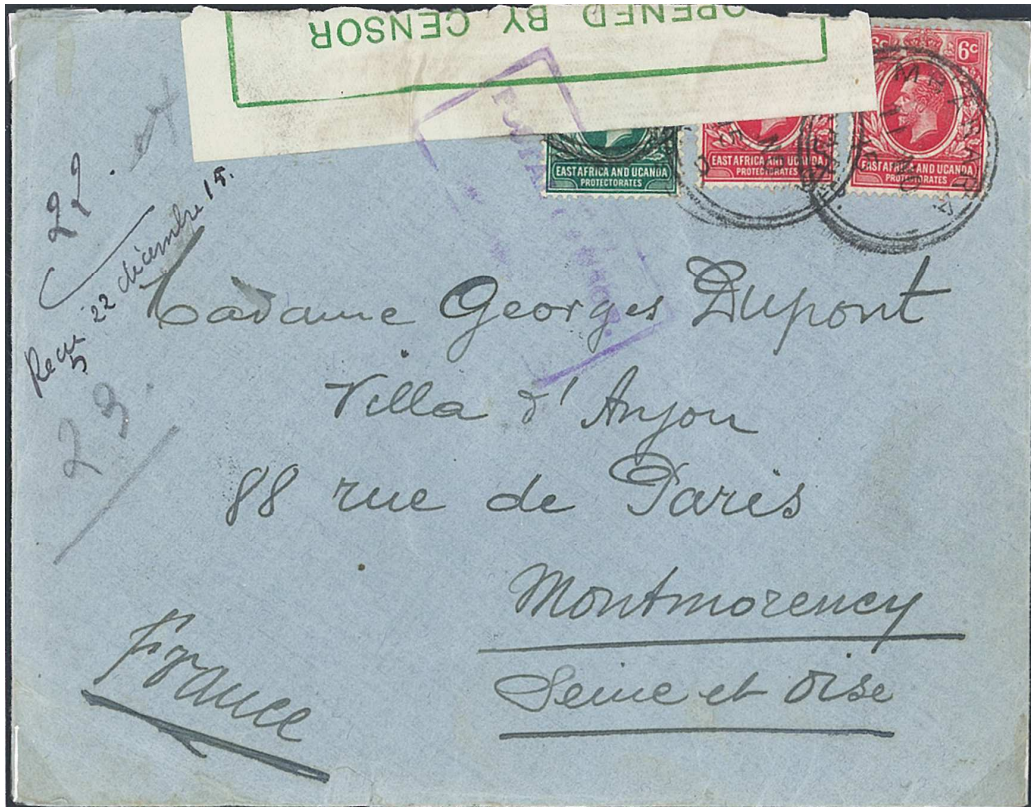 OPENED BY CENSOR
6c
6c
EAST AFRICA AND UGANDA
PROTECTORATES
EAST AFRICA AND UGANDA
PROTECTORATES
EAST AFRICA AND UGANDA
PROTECTORATES
MBARARA
11 NO
15
22.
Recu 22 décembre 15.
23.
Madame Georges Dupont
Villa d'Anjou
88 rue de Paris
Montmorency
Seine et Oise
France